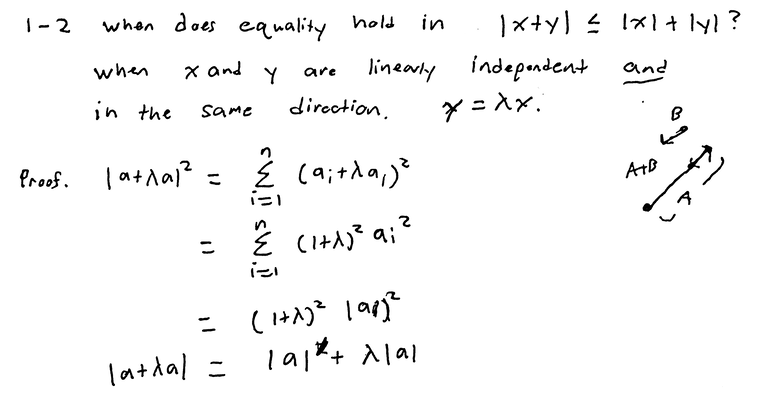 1-2 when does equality hold in |x+y| ≤ |x| + |y| ?
when x and y are linearly independent and
in the same direction. y = λx.
B
A+B
A
Proof. |a+λa|² = Σ_{i=1}^{n} (a_i+λa_i)²
= Σ_{i=1}^{n} (1+λ)² a_i²
= (1+λ)² |a|²
|a+λa| = |a| + λ|a|